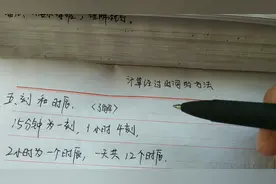 计算经过时间的方法
五、刻和时辰.〈3解〉
15分钟为一刻,1小时4刻,
2小时为一个时辰,一天共12个时辰.